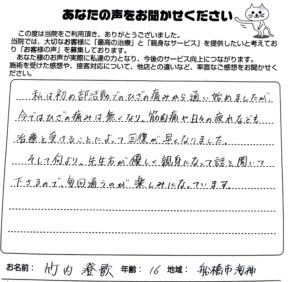 あなたの声をお聞かせください
この度は当院をご利用頂き、ありがとうございました。
当院では、大切なお客様に「最高の治療」と「親身なサービス」を提供したいと考えてお
り「お客様の声」を募集しております。
あなた様のお声が実際に私達の力となり、今後のサービス向上につながります。
施術を受けた感想や、接客対応について、他店との違いなど、率直なご感想をお聞かせくだ
さい。
私は初め部活動でのひざの痛みから通い始めましたが、
今ではひざの痛みは無くなり、筋肉痛や日々の疲れなども
治療を受けることよって回復が早くなりました。
そして何より、先生方が優しく親身になって話を聞いて
下さるので、毎回通うのが楽しみになっています。
お名前： 竹内 登歌 年齢： 16 地域： 船橋市海神